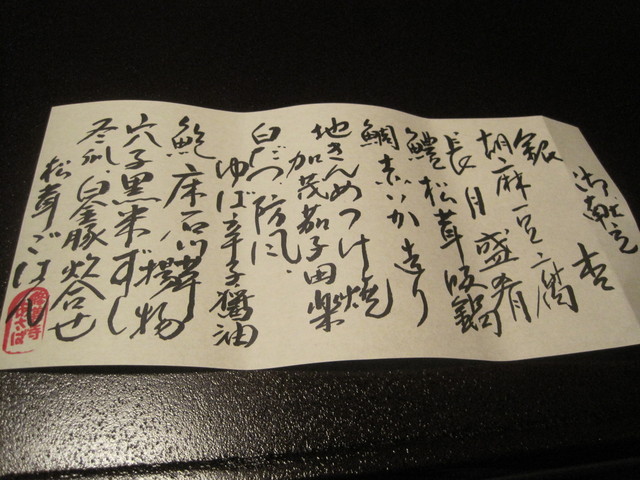 御献立
銀杏
胡麻豆腐
長月盛肴
鱧松茸吸鍋
鯛赤いか造り
地きんめつけ焼
加茂茄子田楽
白ずいき 防風
ゆば辛子醤油
鮑 床石川 擇物
穴子黒米ずし
冬瓜、白金豚炊合せ
松茸ごはん